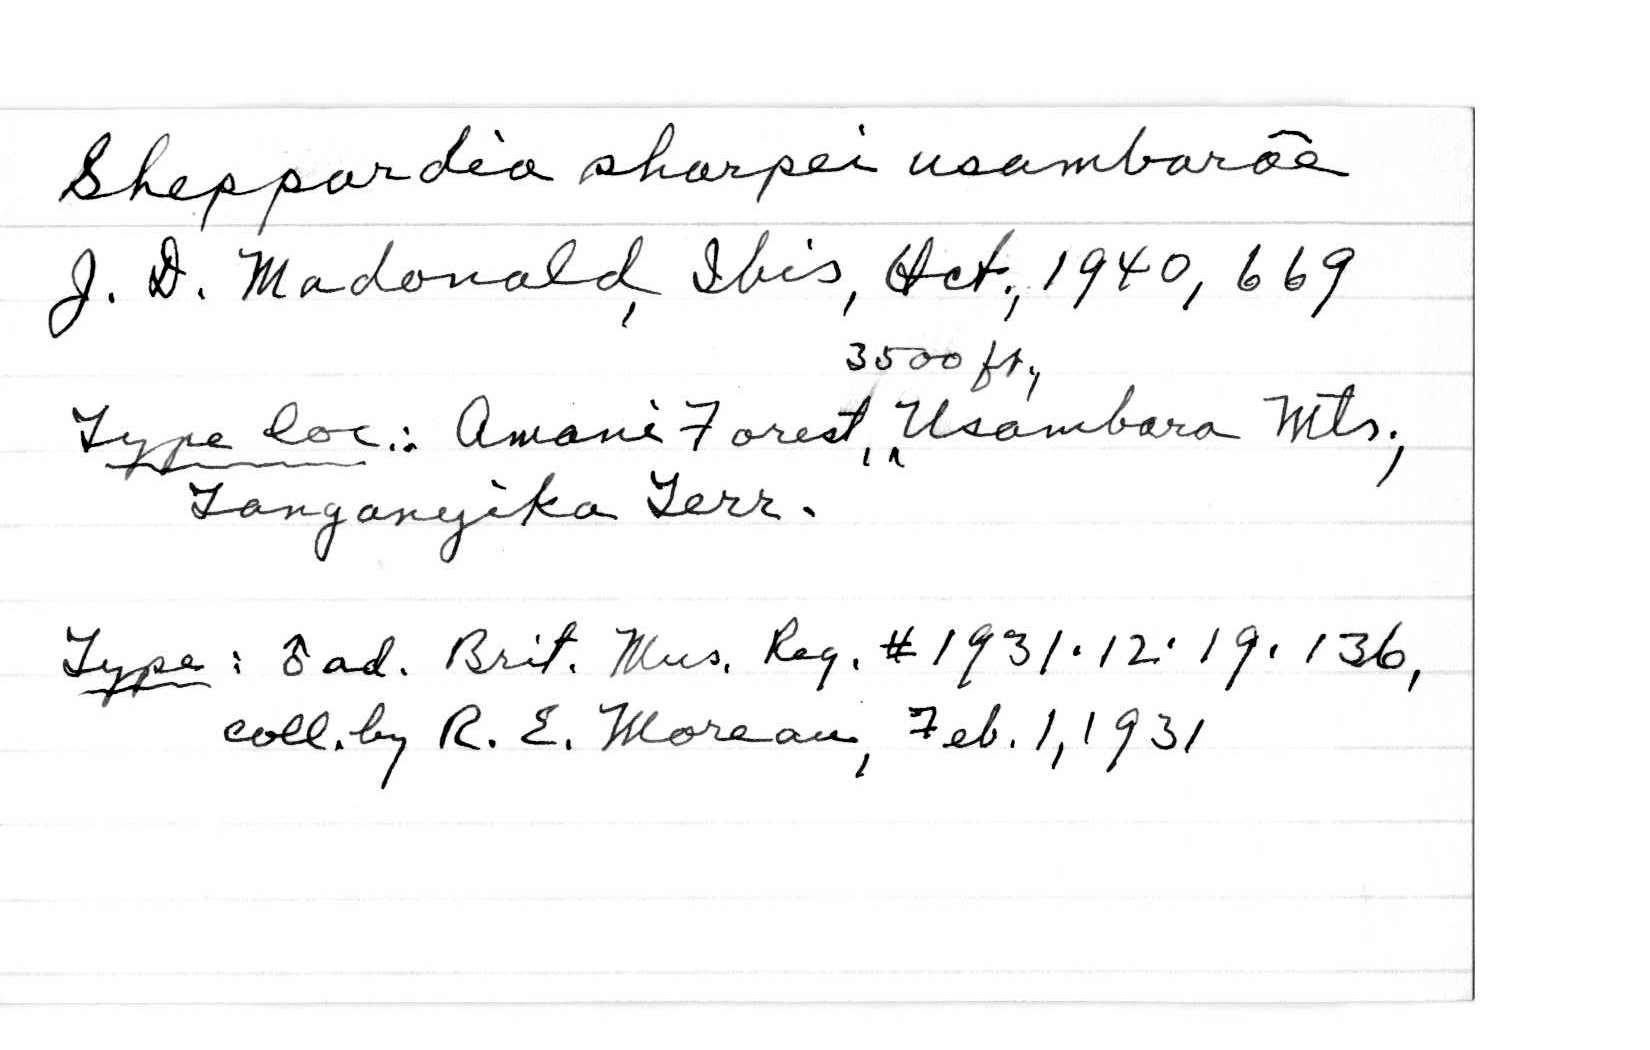 Sheppardia sharpei usambarae
J. D. Madonald, Ibis, Oct., 1940, 669
3500 ft.,
Type loc.: Amani Forest, Usambara Mts.,
Tanganyika Terr.
Type: ♂ ad. Brit. Mus. Reg. # 1931.12.19.136,
coll. by R. E. Moreau, Feb. 1, 1931